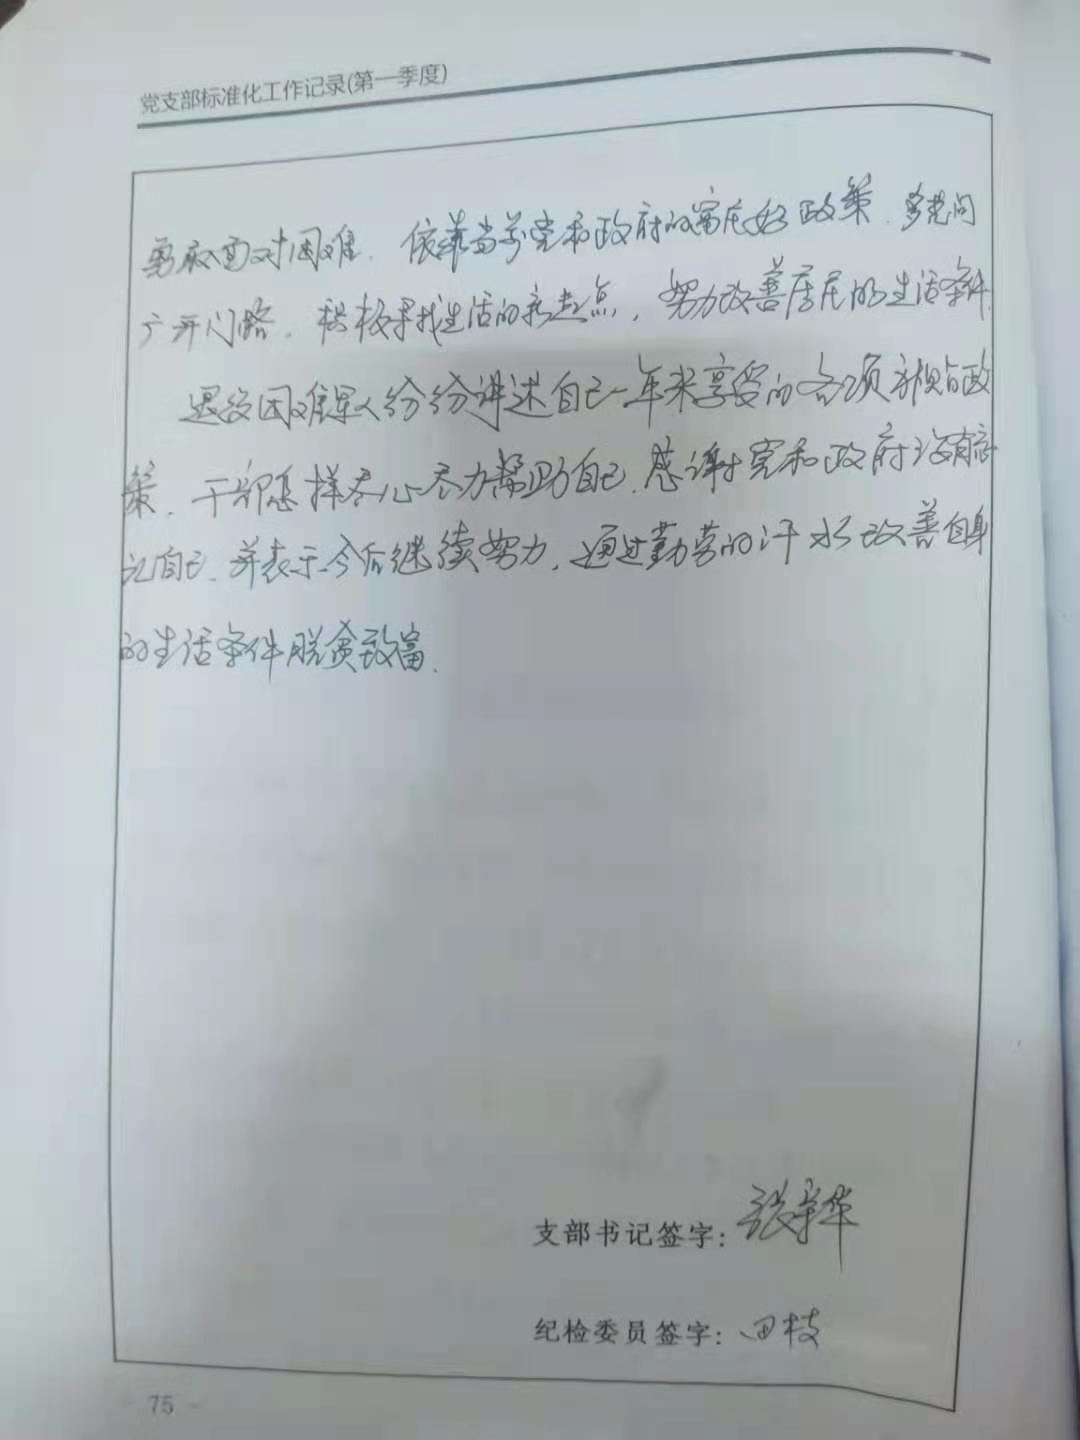 党支部标准化工作记录(第一季度)
勇敢面对困难.依靠当前党和政府的富民好政策.多范问
广开门路.积极寻找生活的新起点,努力改善居民的生活条件.
退役困难军人纷纷讲述自己一年来享受的各项补贴政
策.干部怎样尽心尽力帮助自己.感谢党和政府没有忘
记自己.并表示今后继续努力.通过勤劳的汗水改善自身
的生活条件脱贫致富.
支部书记签字:
纪检委员签字:田枝
75